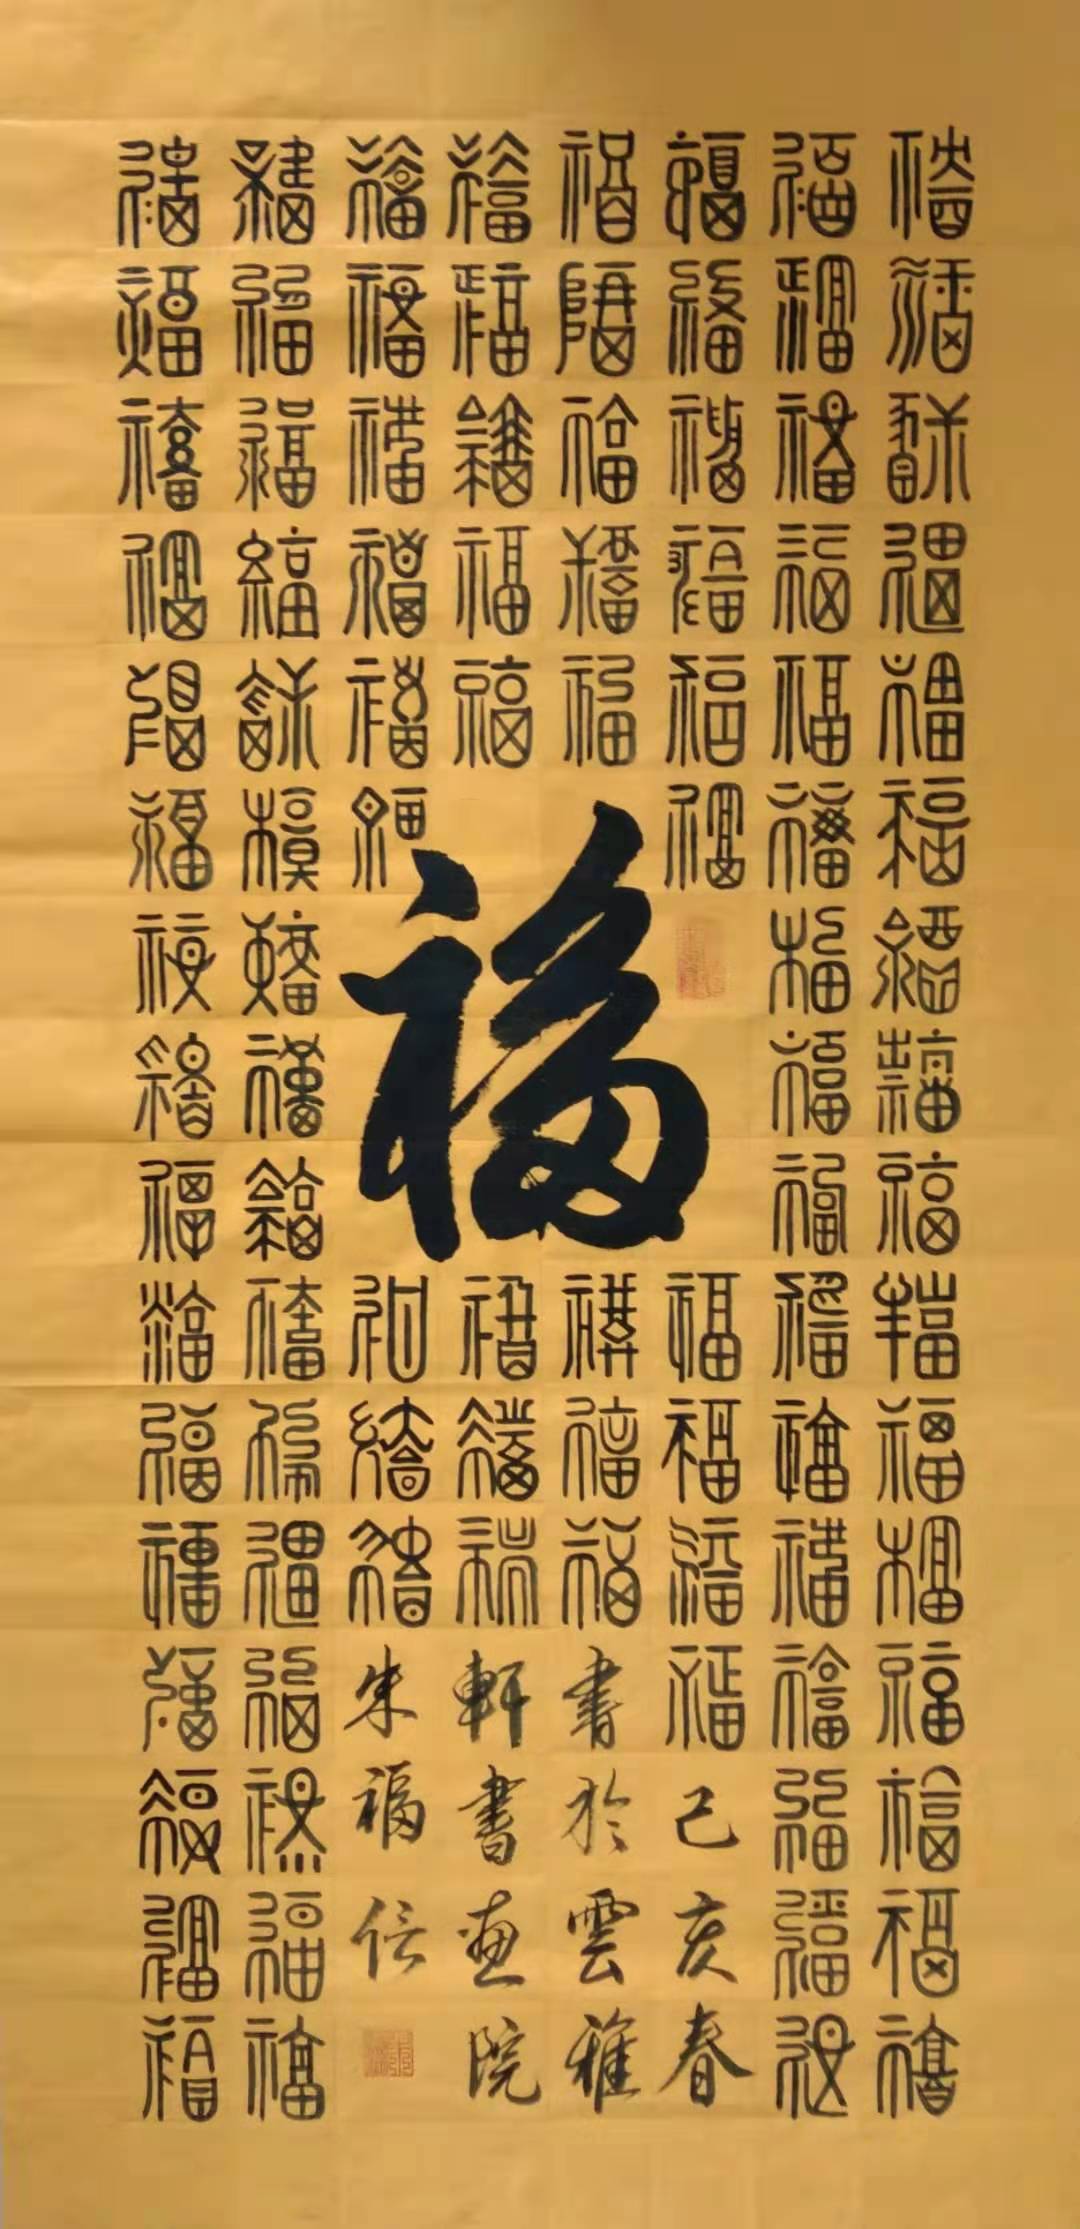 福福福福福福福福福福福福福福福福
福福福福福福福福福福福福福福福福
福福福福福福
福福福福福
福福福福福
福福福福福福
福
福福福福
福福福
福福福
福福福
福福福福福福福福福福福福福福福福
福福福福福福福福福福福福福福福福
己亥春
書於雲雅
軒書畫院
朱福信